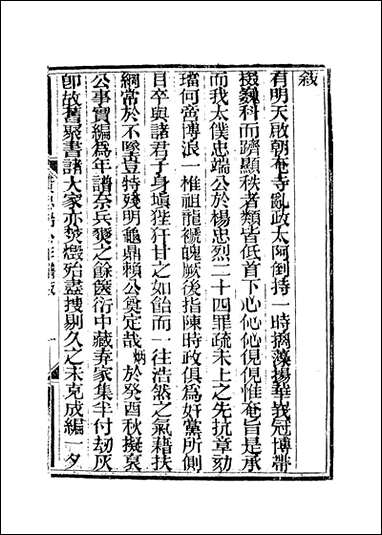 敍
有明天啟朝奄寺亂政太阿倒持一時摛藻揚華峩冠博帶
掇巍科而躋顯秩者類皆低首下心佗佗俔俔惟奄旨是承
而我太僕忠端公於楊忠烈二十四罪疏未上之先抗章劾
璫何啻博浪一椎祖龍褫魄厥後指陳時政俱為奸黨所側
目卒與諸君子身塡狴犴甘之如飴而一往浩然之氣藉扶
綱常於不墜豈特殘明龜鼎賴公奠定哉炳於癸酉秋擬裒
公事實編為年譜奈兵燹之餘篋衍中藏弆家集半付劫灰
卽故舊聚書諸大家亦焚燬殆盡搜剔久之未克成編一夕